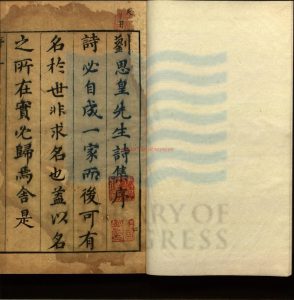 劉思皇先生詩集序
詩必自成一家而後可有
名於世非求名也蓋以名
之所在實必歸焉舍是